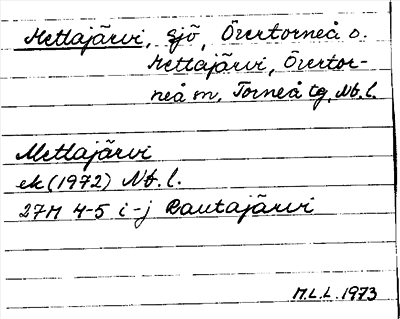 Mettajärvi, sjö, Övertorneå o.
Mettajärvi, Övertor-
neå m, Torneå tg, Nb. l.
Mettajärvi
ek (1972) Nb. l.
27M 4-5 i-j Rautajärvi
M.L.L. 1973